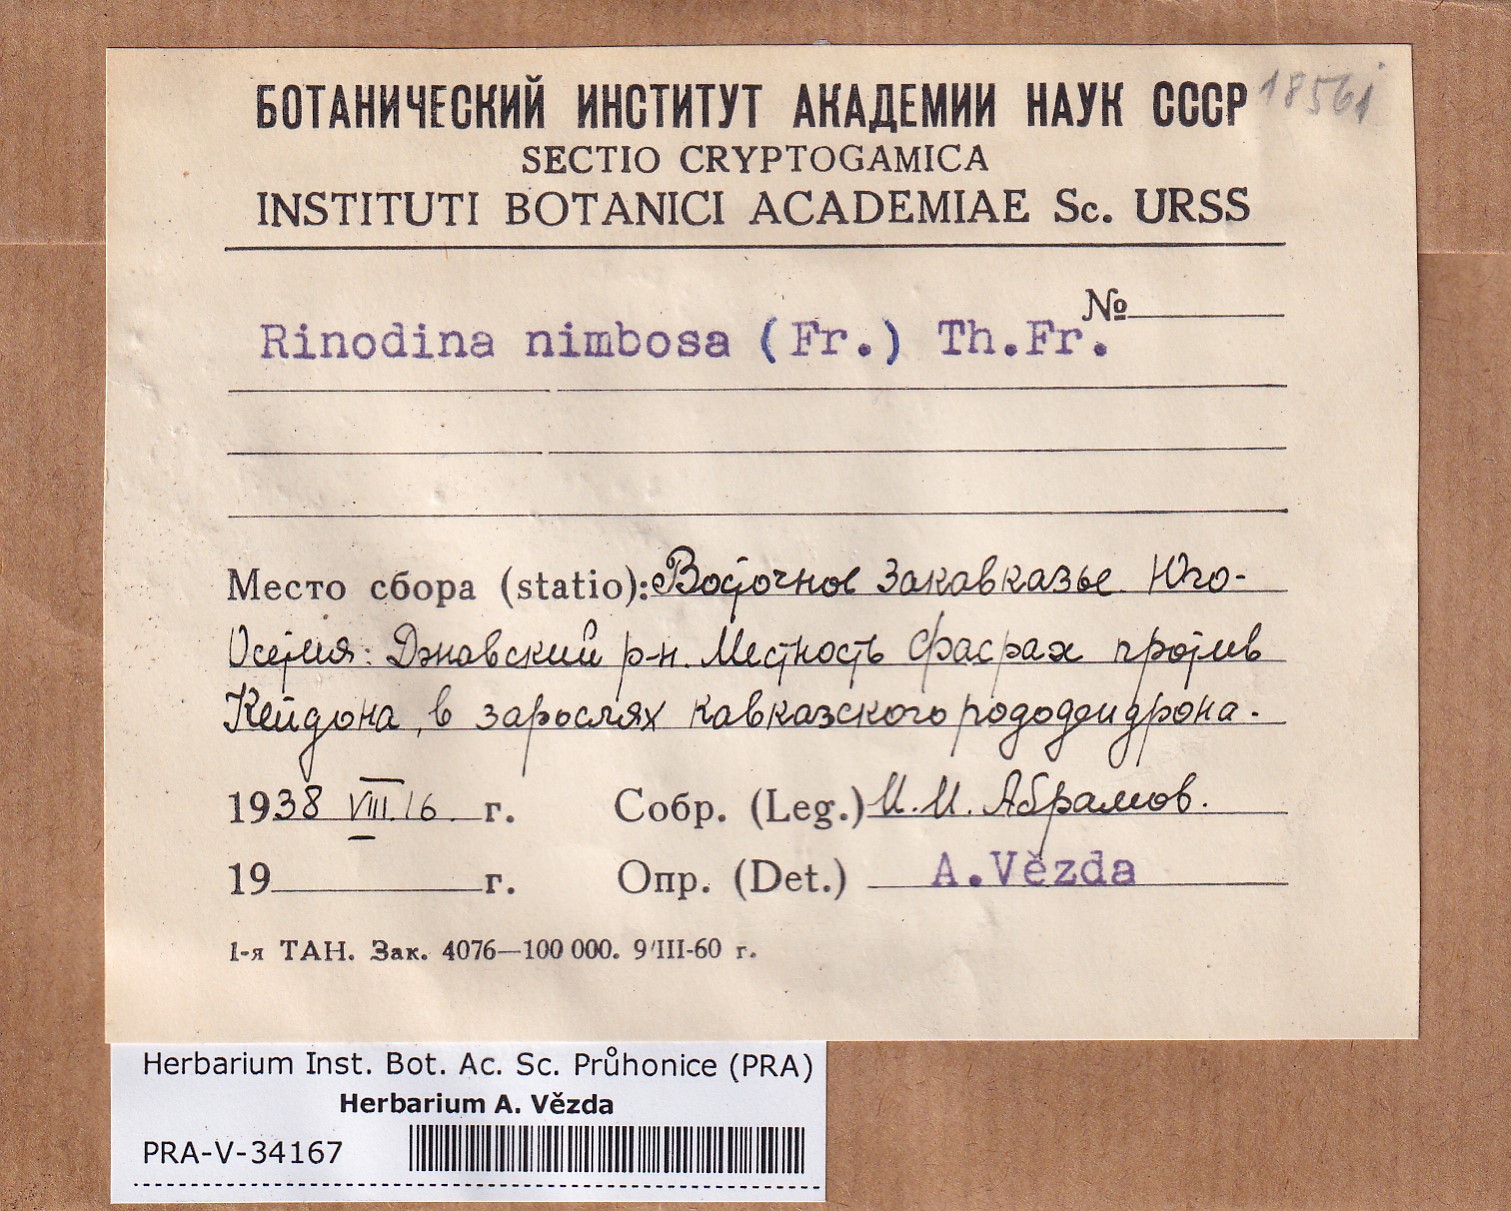 БОТАНИЧЕСКИЙ ИНСТИТУТ АКАДЕМИИ НАУК СССР
SECTIO CRYPTOGAMICA
INSTITUTI BOTANICI ACADEMIAE Sc. URSS
№
Rinodina nimbosa (Fr.) Th.Fr.
Место сбора (statio): Восточное Закавказье Юго-
Осетия: Джавский р-н. Местность Фасрах против
Кейдона, в зарослях кавказского рододендрона.
1938 VIII.16. г. Собр. (Leg.) И.И. Абрамов.
19 г. Опр. (Det.) A.Vězda
1-я ТАН. Зак. 4076—100 000. 9/III-60 г.
Herbarium Inst. Bot. Ac. Sc. Průhonice (PRA)
Herbarium A. Vězda
PRA-V-34167